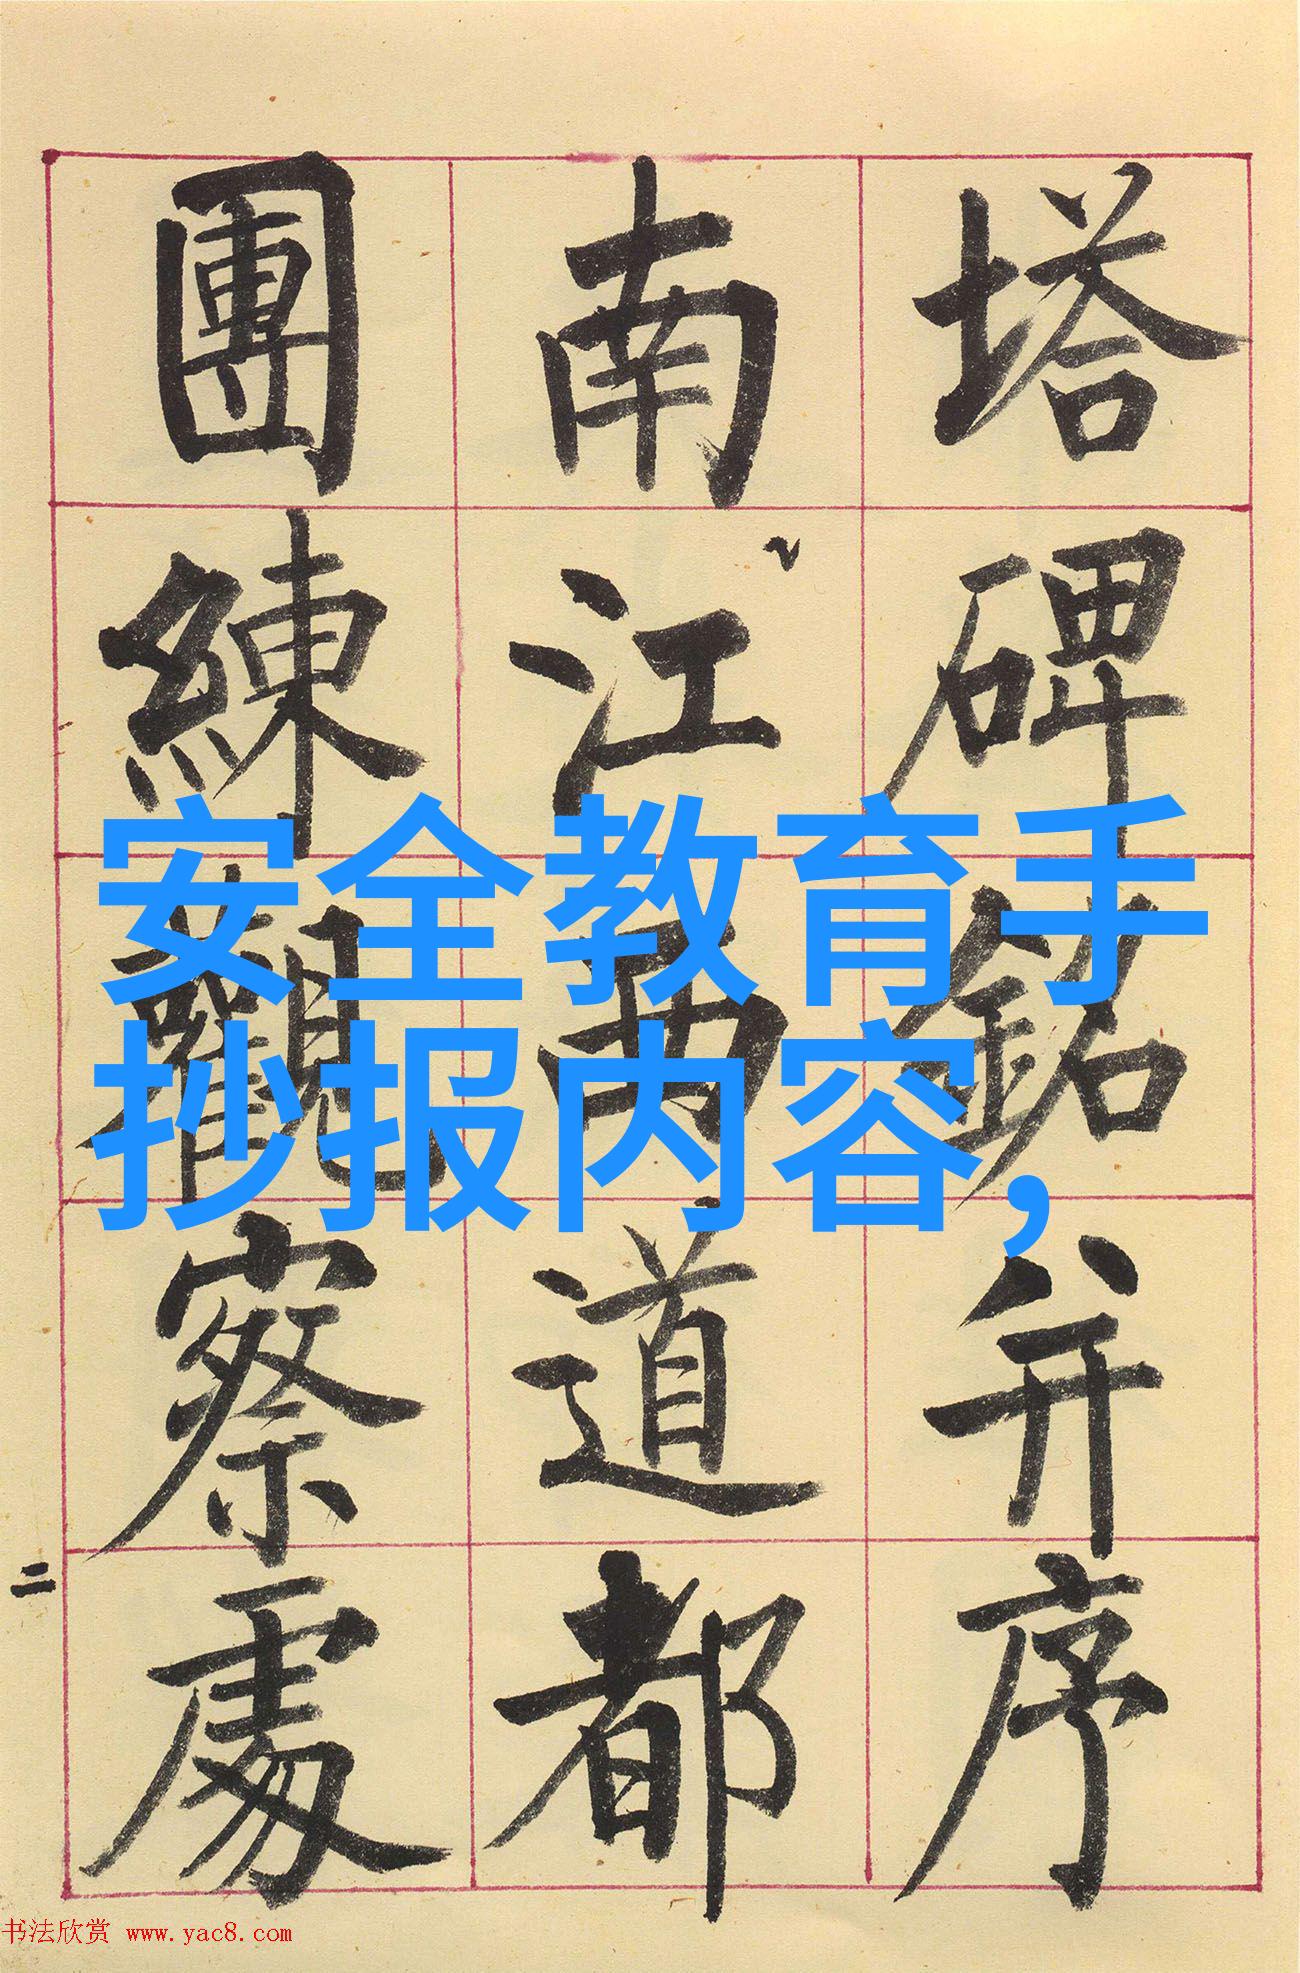 塔碑銘并序
南江西道都
團練觀察處
二
安全教育手
抄报内容，
书法欣赏 www.yac8.com